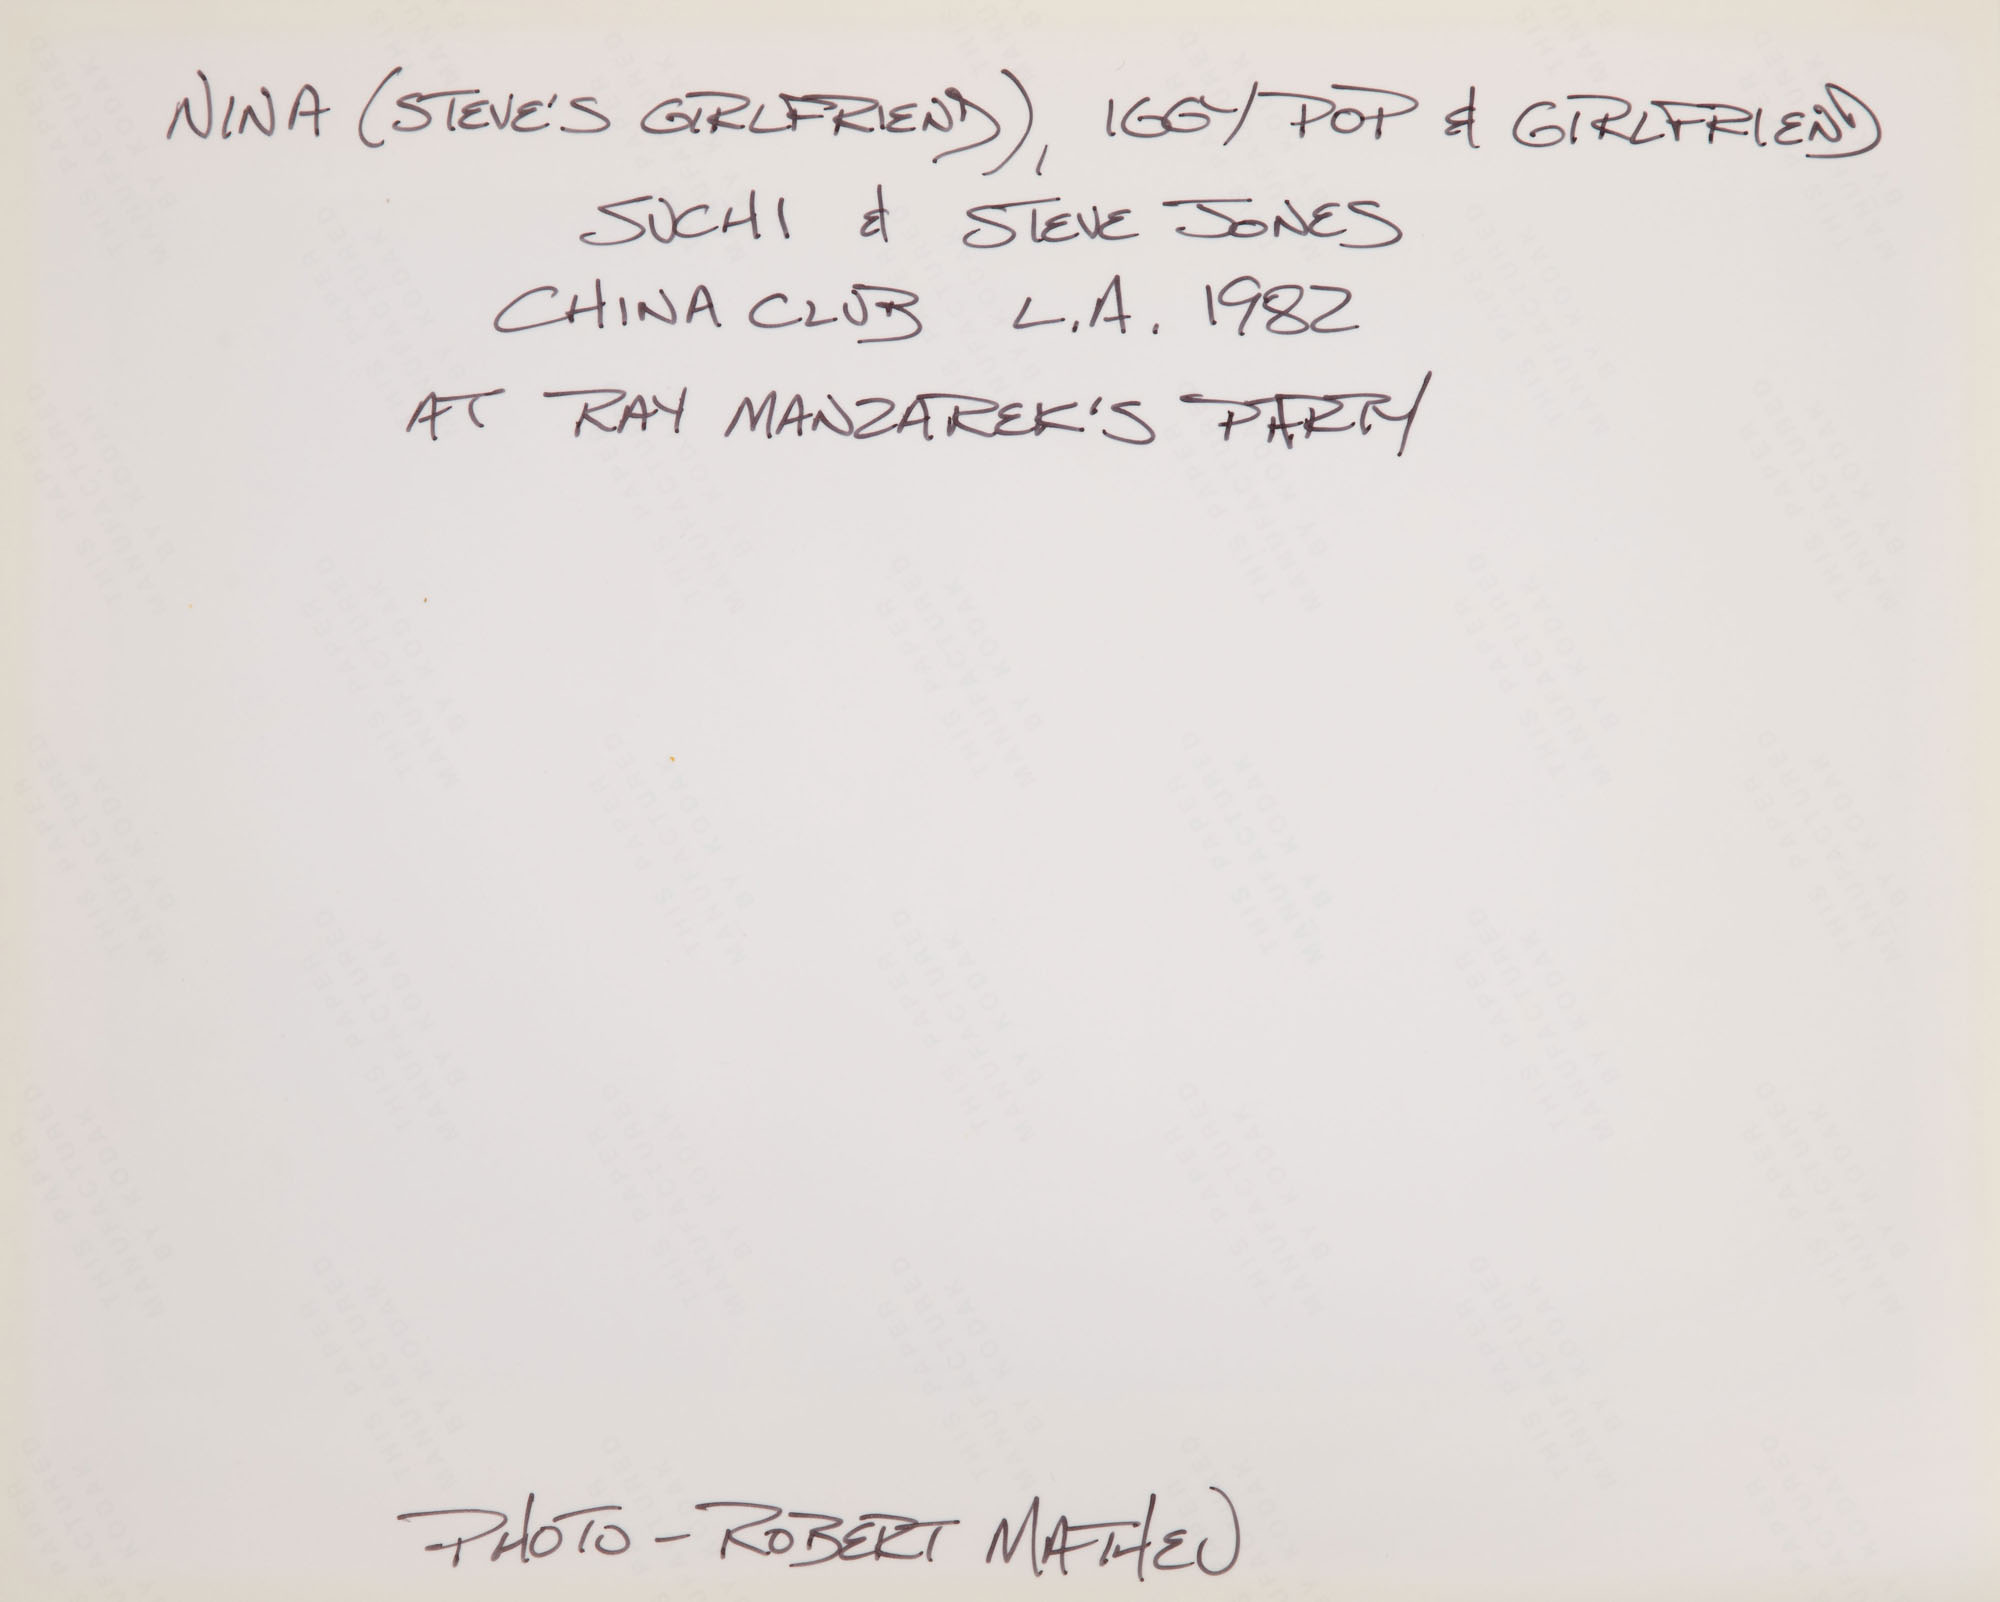 NINA (STEVE'S GIRLFRIEND), IGGY POP & GIRLFRIEND
SUCHI & STEVE JONES
CHINA CLUB L.A. 1982
AT RAY MANZAREK'S PARTY
PHOTO - ROBERT MATHEU
THIS PAPER
MANUFACTURED
BY KODAK